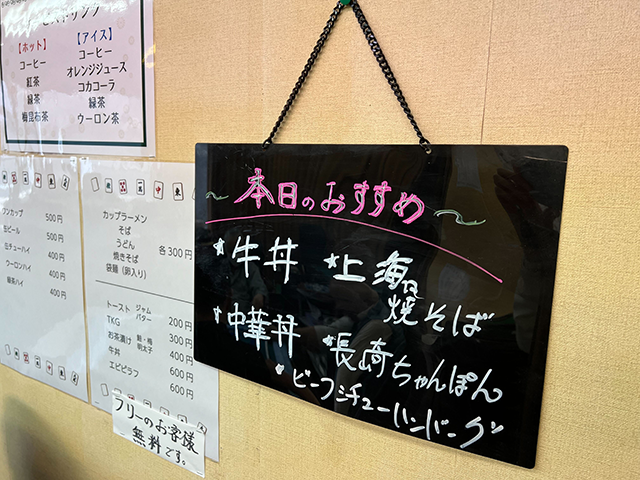 【ホット】
コーヒー
紅茶
緑茶
梅昆布茶
【アイス】
コーヒー
オレンジジュース
コカコーラ
緑茶
ウーロン茶
ワンカップ 500円
缶ビール 500円
缶チューハイ 400円
ウーロンハイ 400円
緑茶ハイ 400円
カップラーメン
そば
うどん
焼きそば
袋麺（卵入り）
各300円
トースト ジャム バター 200円
TKG 300円
お茶漬け 鮭・梅 明太子 400円
牛丼 600円
エビピラフ 600円
フリーのお客様
無料です。
本日のおすすめ
★牛丼
★上海風
焼そば
★中華丼
★長崎ちゃんぽん
★ビーフシチューハンバーグ